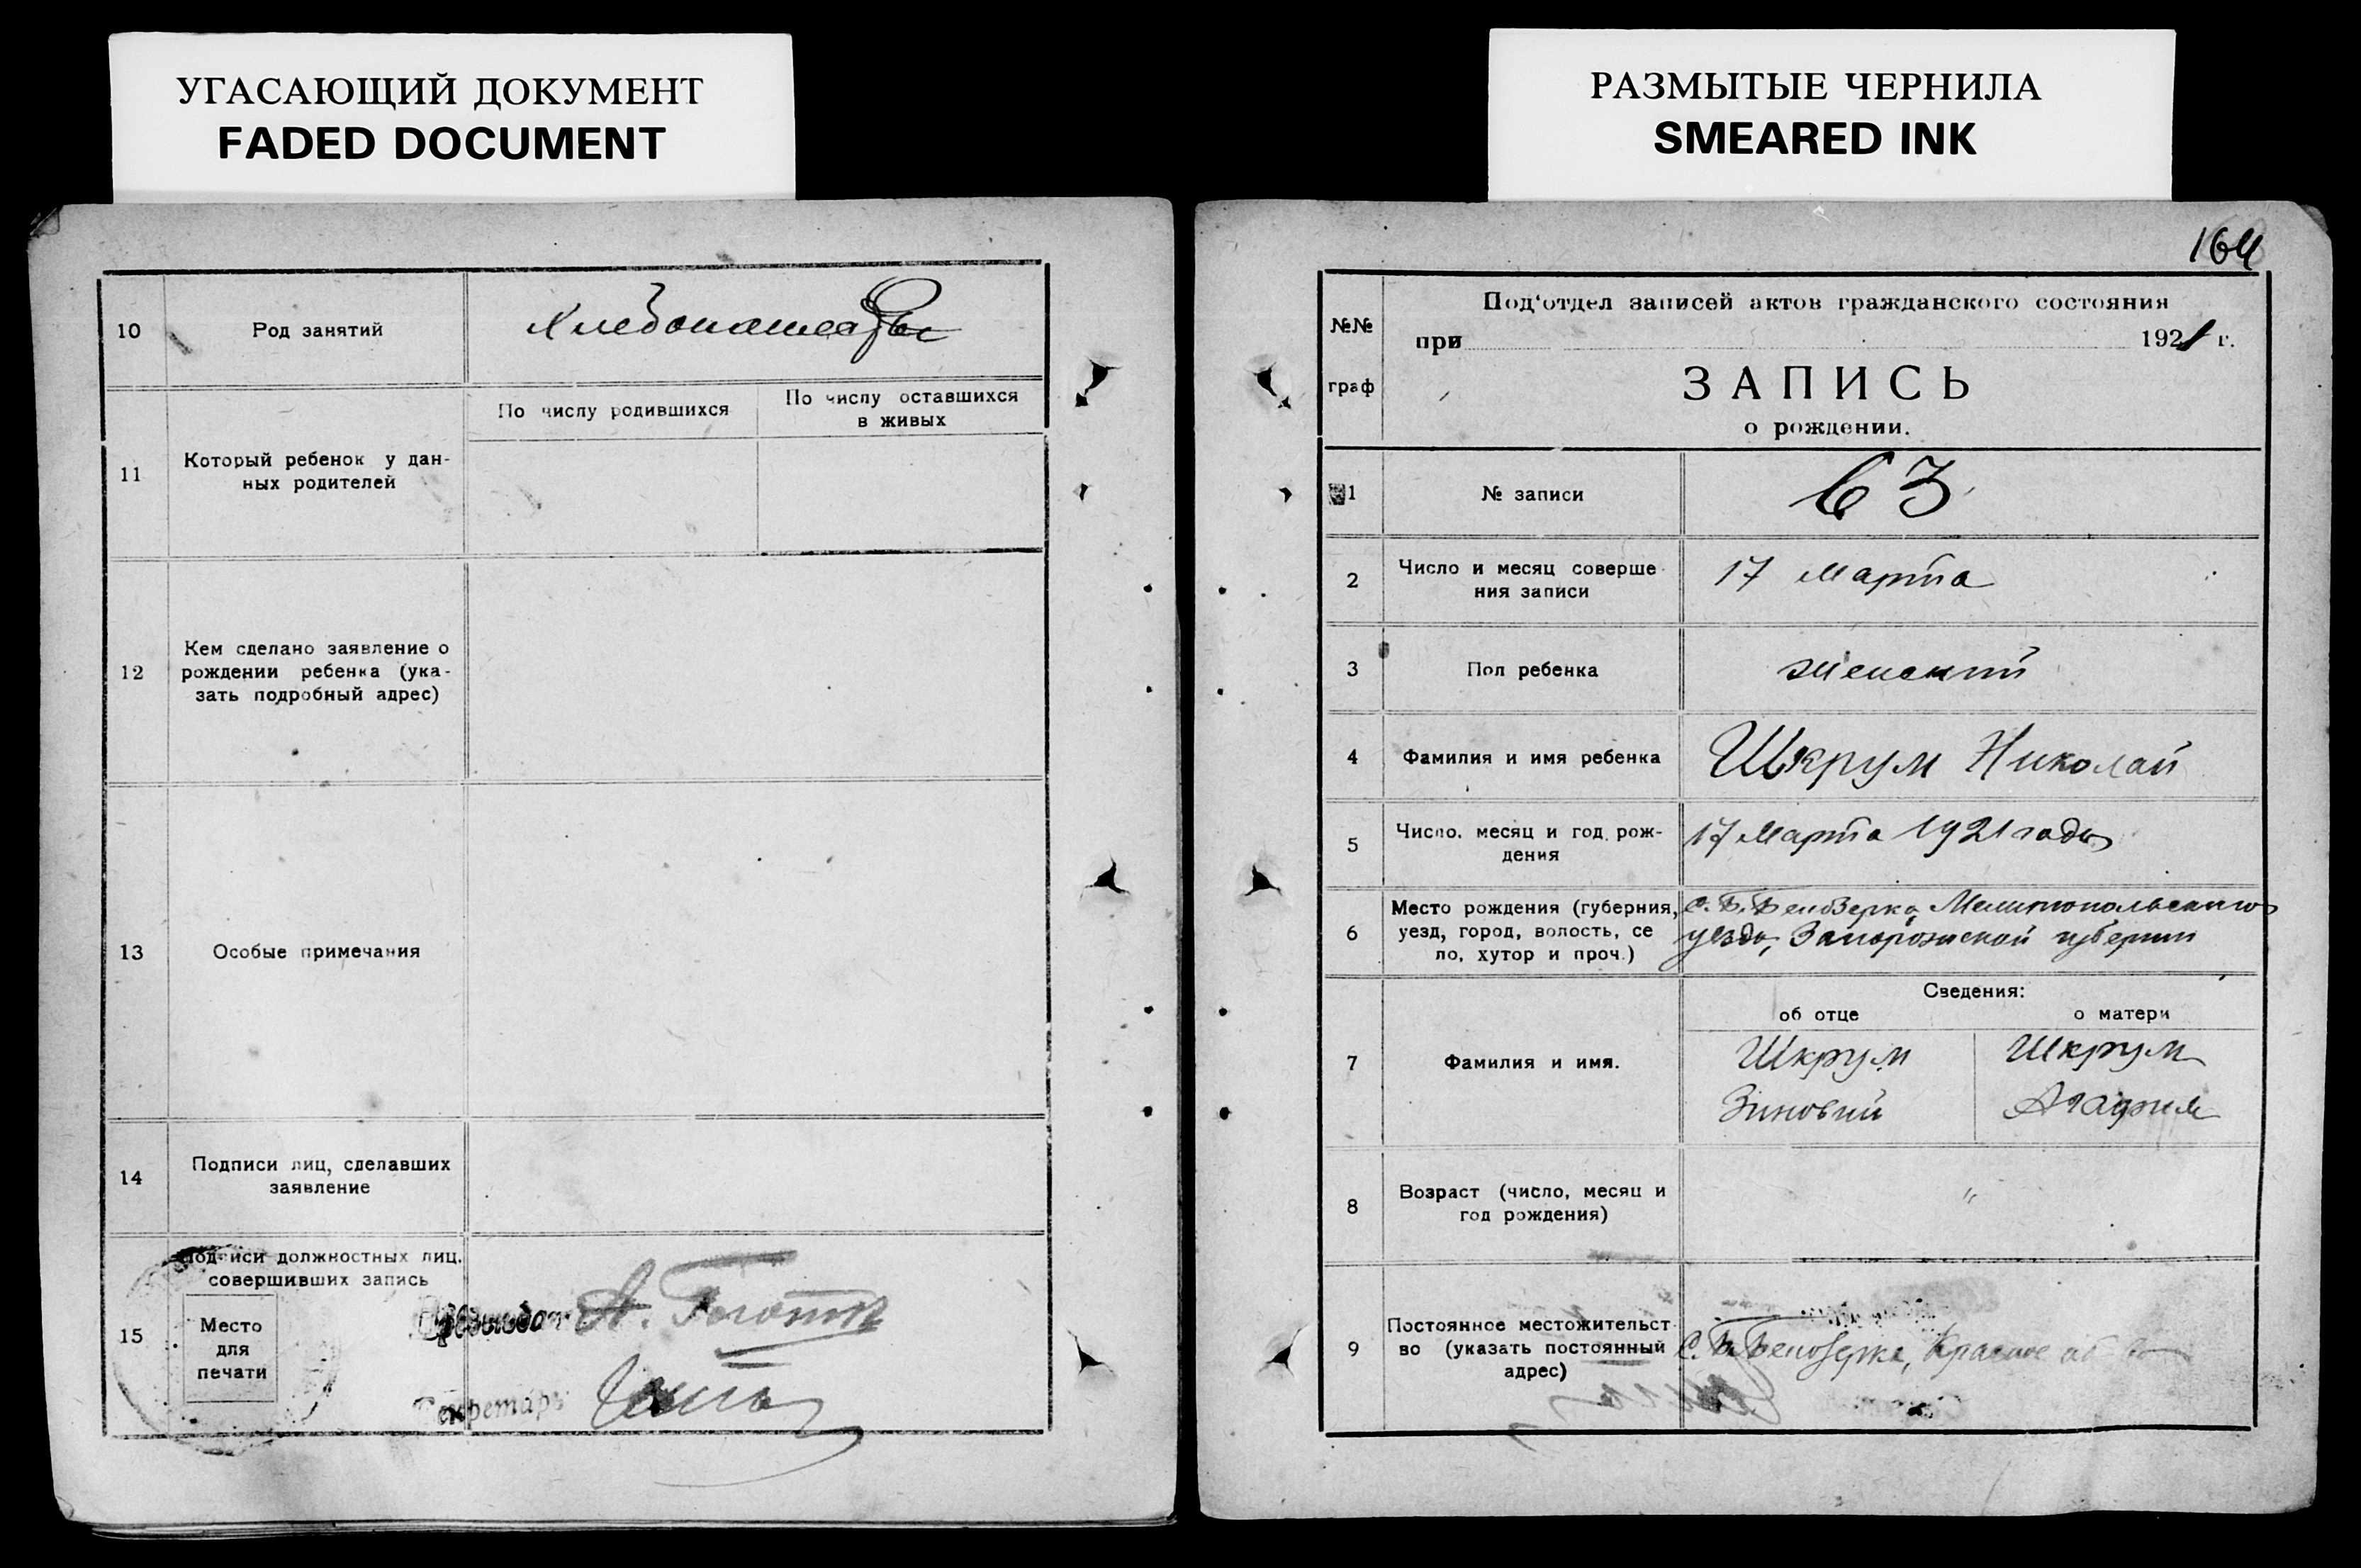 УГАСАЮЩИЙ ДОКУМЕНТ
FADED DOCUMENT
10
Род занятий
Хлебопашест
11
Который ребенок у дан-
ных родителей
По числу родившихся
По числу оставшихся
в живых
12
Кем сделано заявление о
рождении ребенка (ука-
зать подробный адрес)
13
Особые примечания
14
Подписи лиц, сделавших
заявление
15
Подписи должностных лиц.
совершивших запись
Место
для
печати
А.
Секретарь
РАЗМЫТЫЕ ЧЕРНИЛА
SMEARED INK
164
№№
граф
Под'отдел записей актов гражданского состояния
при 1921 г.
ЗАПИСЬ
о рождении.
1
№ записи
63
2
Число и месяц соверше-
ния записи
17 Марта
3
Пол ребенка
женский
4
Фамилия и имя ребенка
Шкрум Николай
5
Число, месяц и год рож-
дения
17 Марта 1921 года
6
Место рождения (губерния,
уезд, город, волость, се
ло, хутор и проч.)
с. Б. Белозерка, Мелитопольского
уезда, Запорожской губернии
Сведения:
об отце
о матери
7
Фамилия и имя.
Шкрум
Зиновий
Шкрум
Агафия
8
Возраст (число, месяц и
год рождения)
"
9
Постоянное местожительст-
во (указать постоянный
адрес)
С. Б. Белозерка,